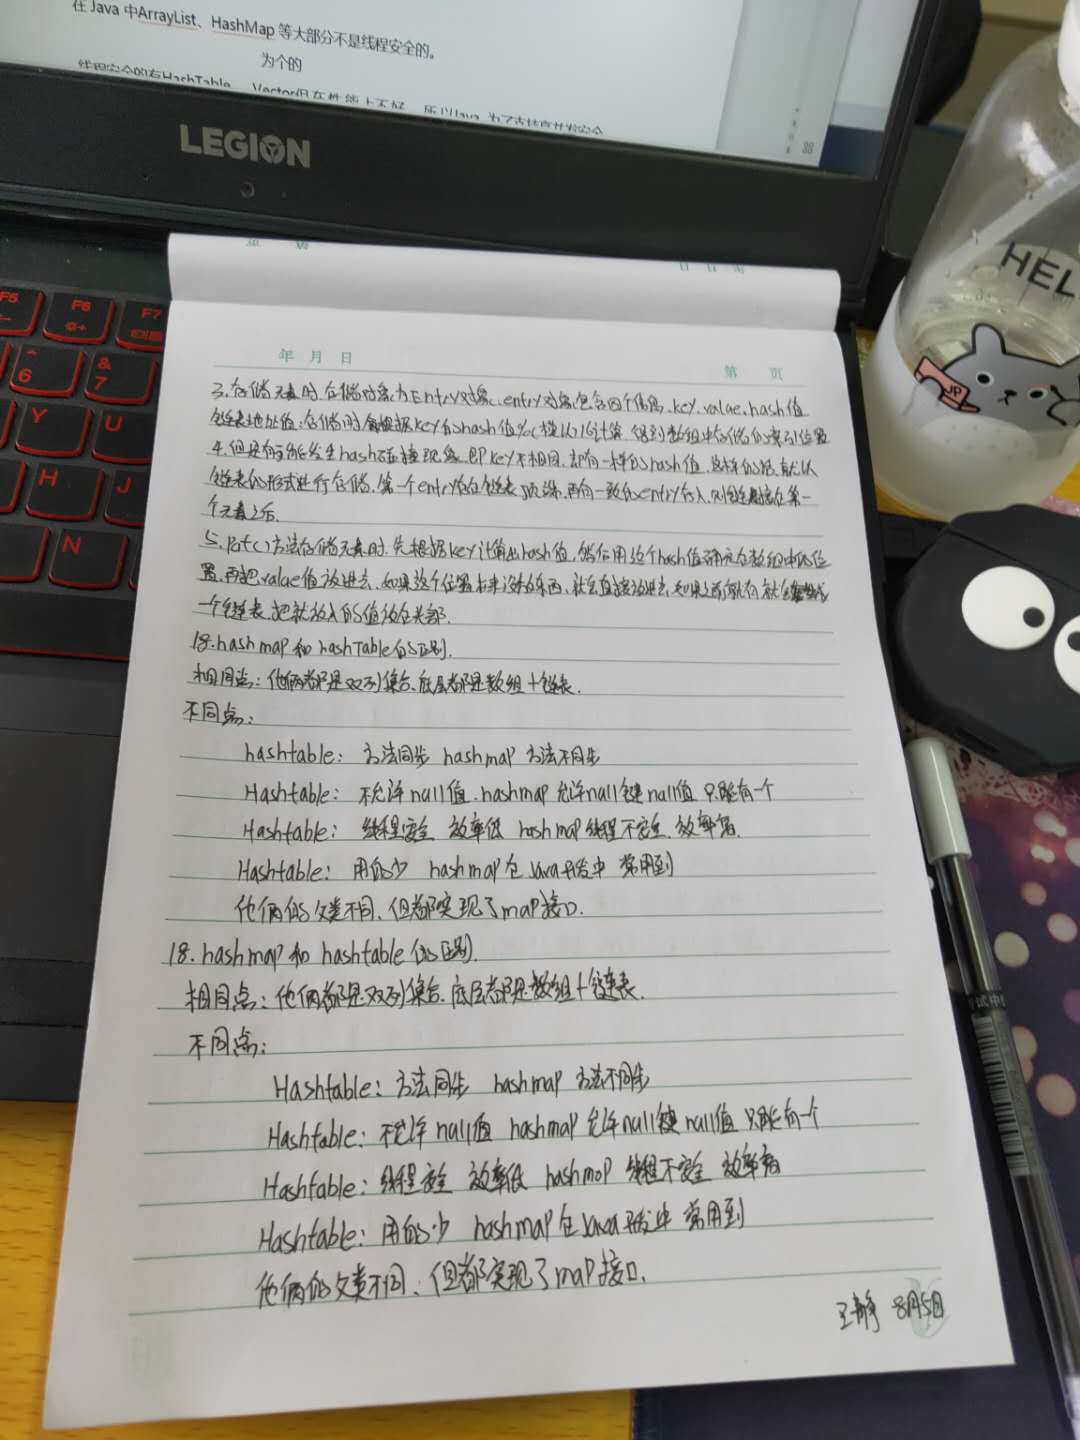 在 Java 中ArrayList、HashMap 等大部分不是线程安全的。
为个的
线程安全的有HashTable、Vector但在性能上不好，所以Java 为了支持高并发安全
38
LEGION
HEL
JP
F5
F6
F7
6
&
7
Y
U
H
J
N
年 月 日
第 页
3.存储元素时,存储对象为Entry对象,entry对象包含四个信息,key,value,hash值
链表地址值;存储时会根据key的hash值%模以16计算,得到数组中存储的索引位置
4.但是有可能发生hash碰撞现象,即key不相同,却有一样的hash值,这样的话,就以
链表的形式进行存储,第一个entry位在链表顶端,再有一致的entry存入,则链接在第一
个元素之后.
5.Put()方法存储元素时,先根据key计算出hash值,然后用这个hash值确定在数组中的位
置,再把value值放进去,如果这个位置本来没有东西,就会直接放进去,如果之前就有就会
一个链表,把就放入的值放在头部.
18.hashmap和hashTable的区别.
相同点:他俩都是双列集合,底层都是数组+链表.
不同点:
hashtable: 方法同步 hashmap 方法不同步
Hashtable: 不允许null值.hashmap 允许null键null值 只能有一个
Hashtable: 线程安全 效率低 hashmap线程不安全,效率高.
Hashtable: 用的少 hashmap在Java开发中 常用到
他俩的父类不同、但都实现了map接口.
18.hashmap和hashtable的区别.
相同点:他俩都是双列集合.底层都是数组+链表.
不同点:
Hashtable: 方法同步 hashmap 方法不同步
Hashtable: 不允许null值 hashmap允许null键null值 只能有一个
Hashtable: 线程安全 效率低 hashmap 线程不安全 效率高
Hashtable: 用的少 hashmap在Java开发中 常用到
他俩的父类不同、但都实现了map接口.
王静 8月5日